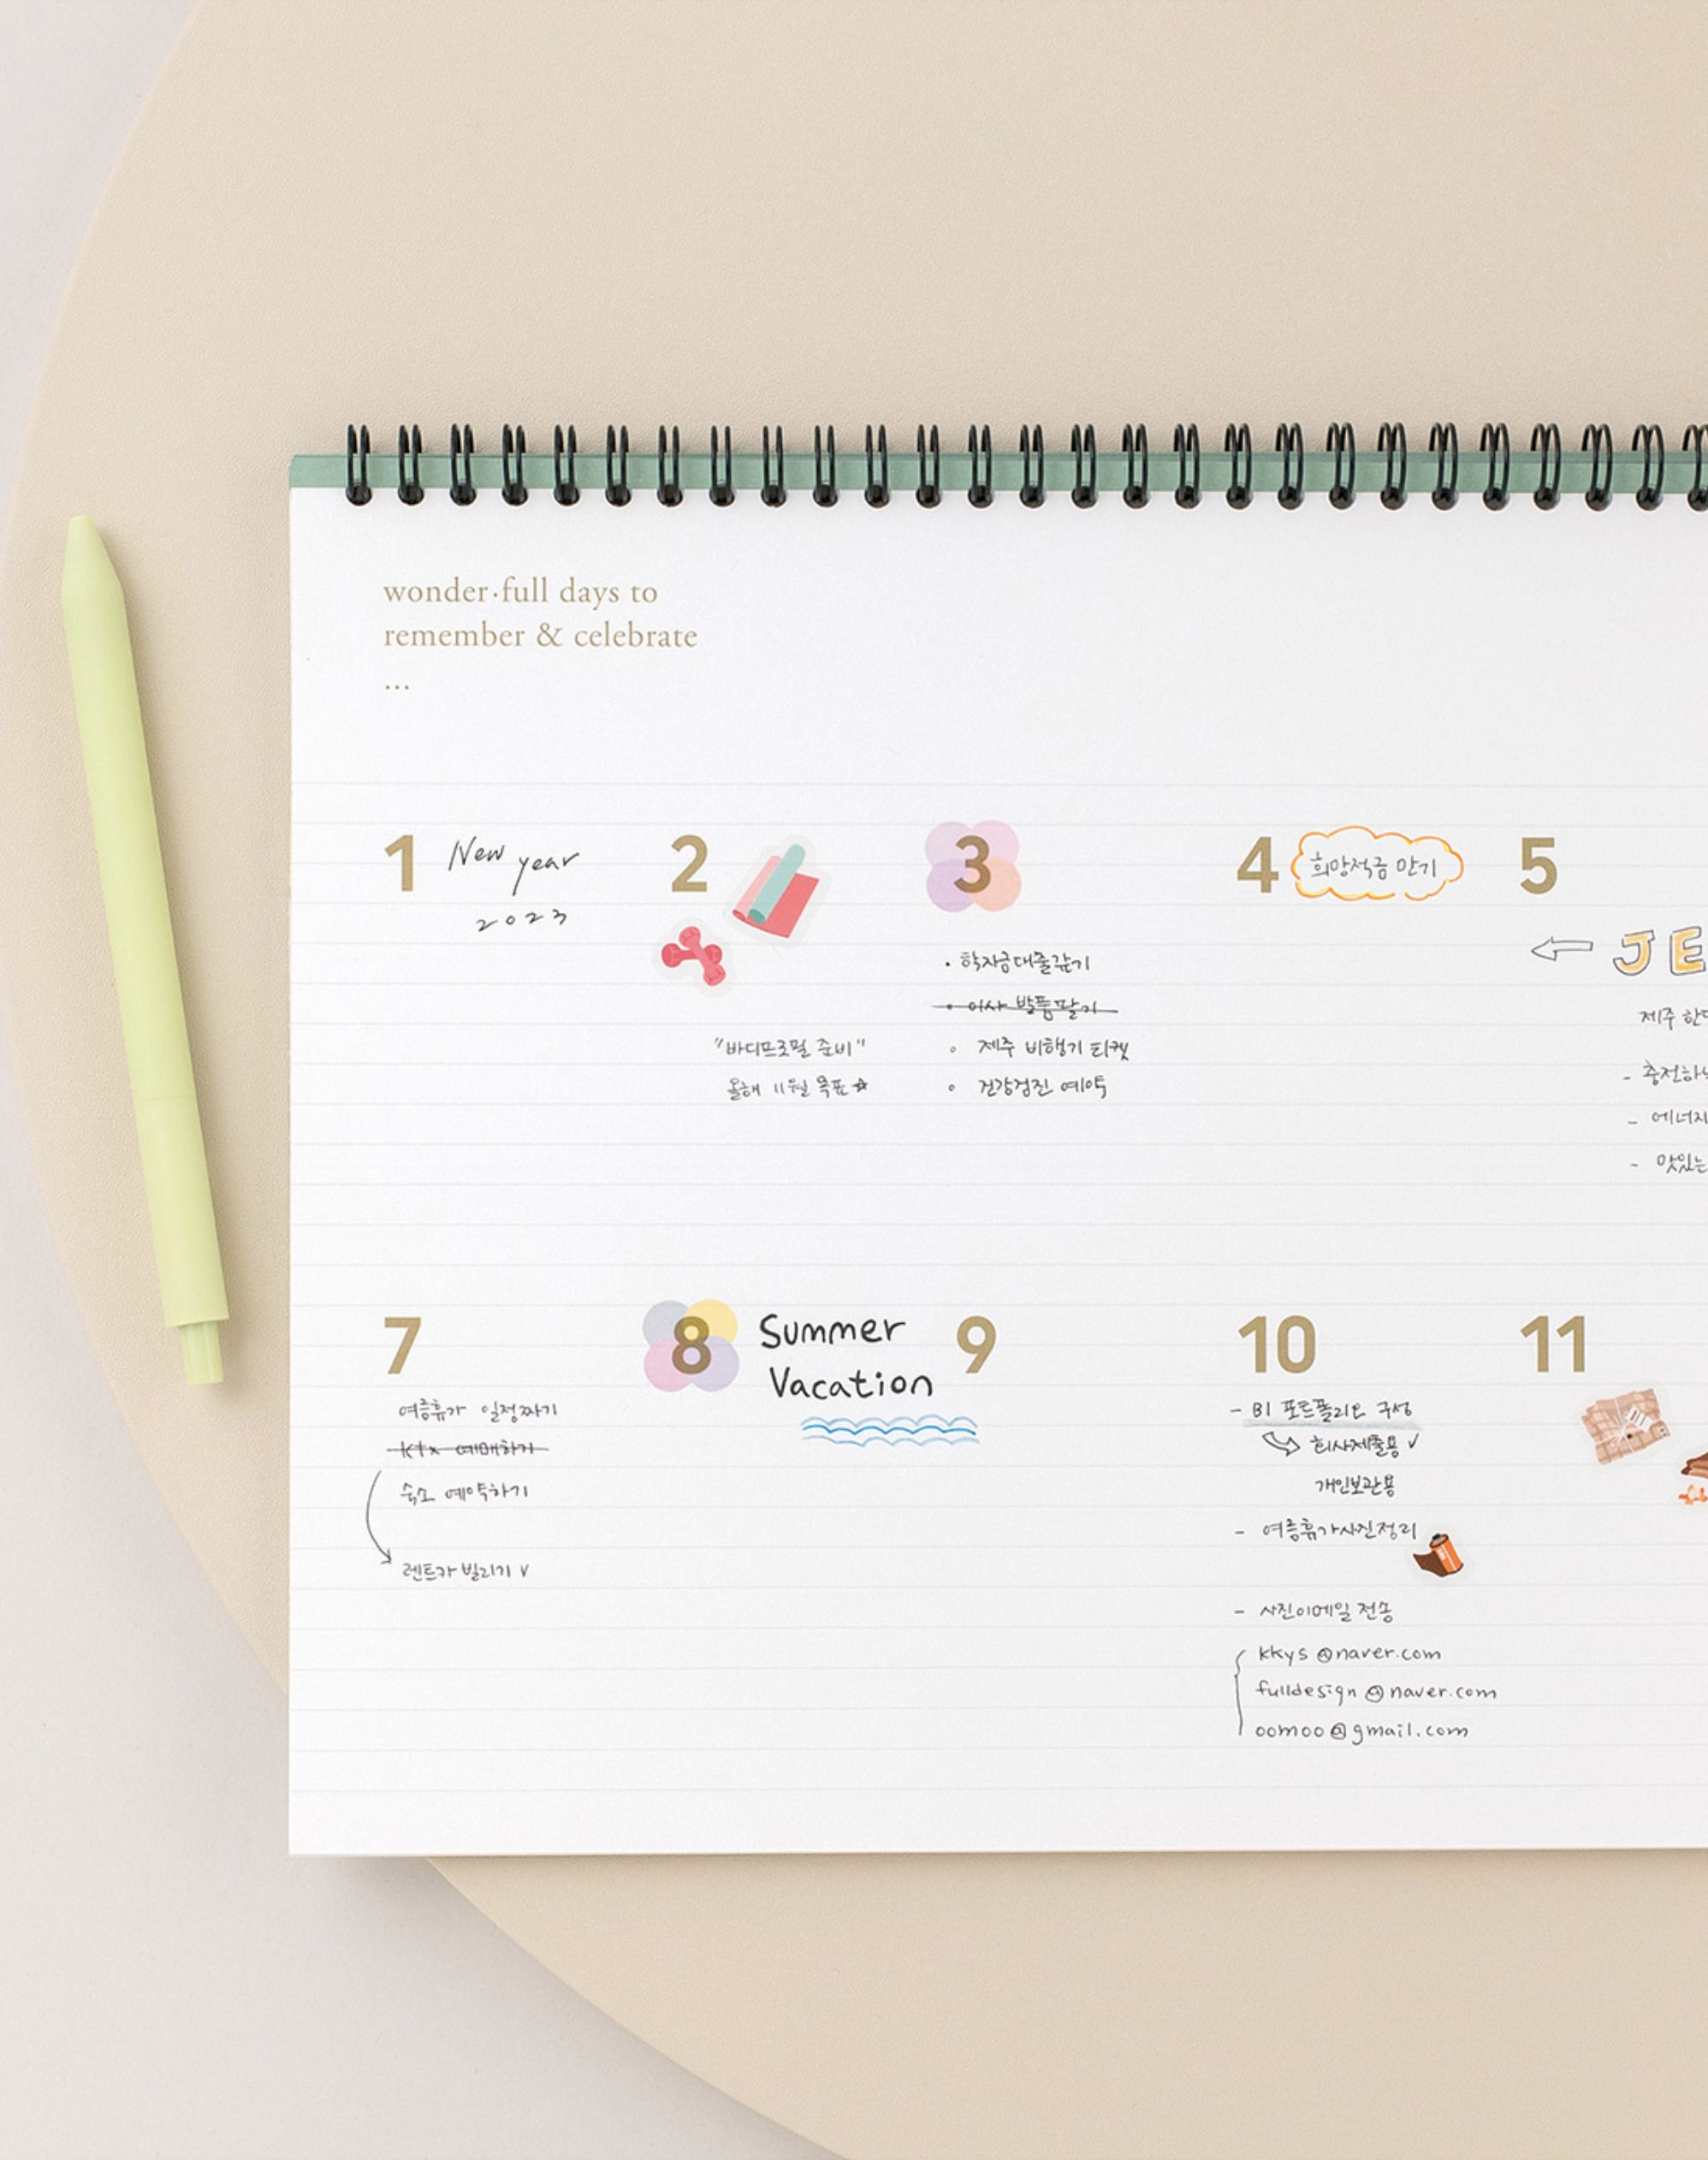 wonder·full days to
remember & celebrate
...
1
New year
2023
2
"바디프로필 준비"
올해 11월 목표☆
3
· 학자금대출갚기
· 이사 발품팔기
◦ 제주 비행기 티켓
◦ 건강검진 예약
4
희망적금 만기
5
JE
제주 한
- 충전하
- 에너지
- 맛있는
7
여름휴가 일정짜기
ktx 예매하기
숙소 예약하기
렌트카 빌리기 v
8
Summer
Vacation
9
10
- BI 포트폴리오 구성
회사제출용 v
개인보관용
- 여름휴가사진정리
- 사진이메일 전송
kkys@naver.com
fulldesign@naver.com
oomoo@gmail.com
11